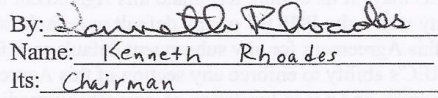 By: Kenneth Rhoades
Name: Kenneth Rhoades
Its: Chairman